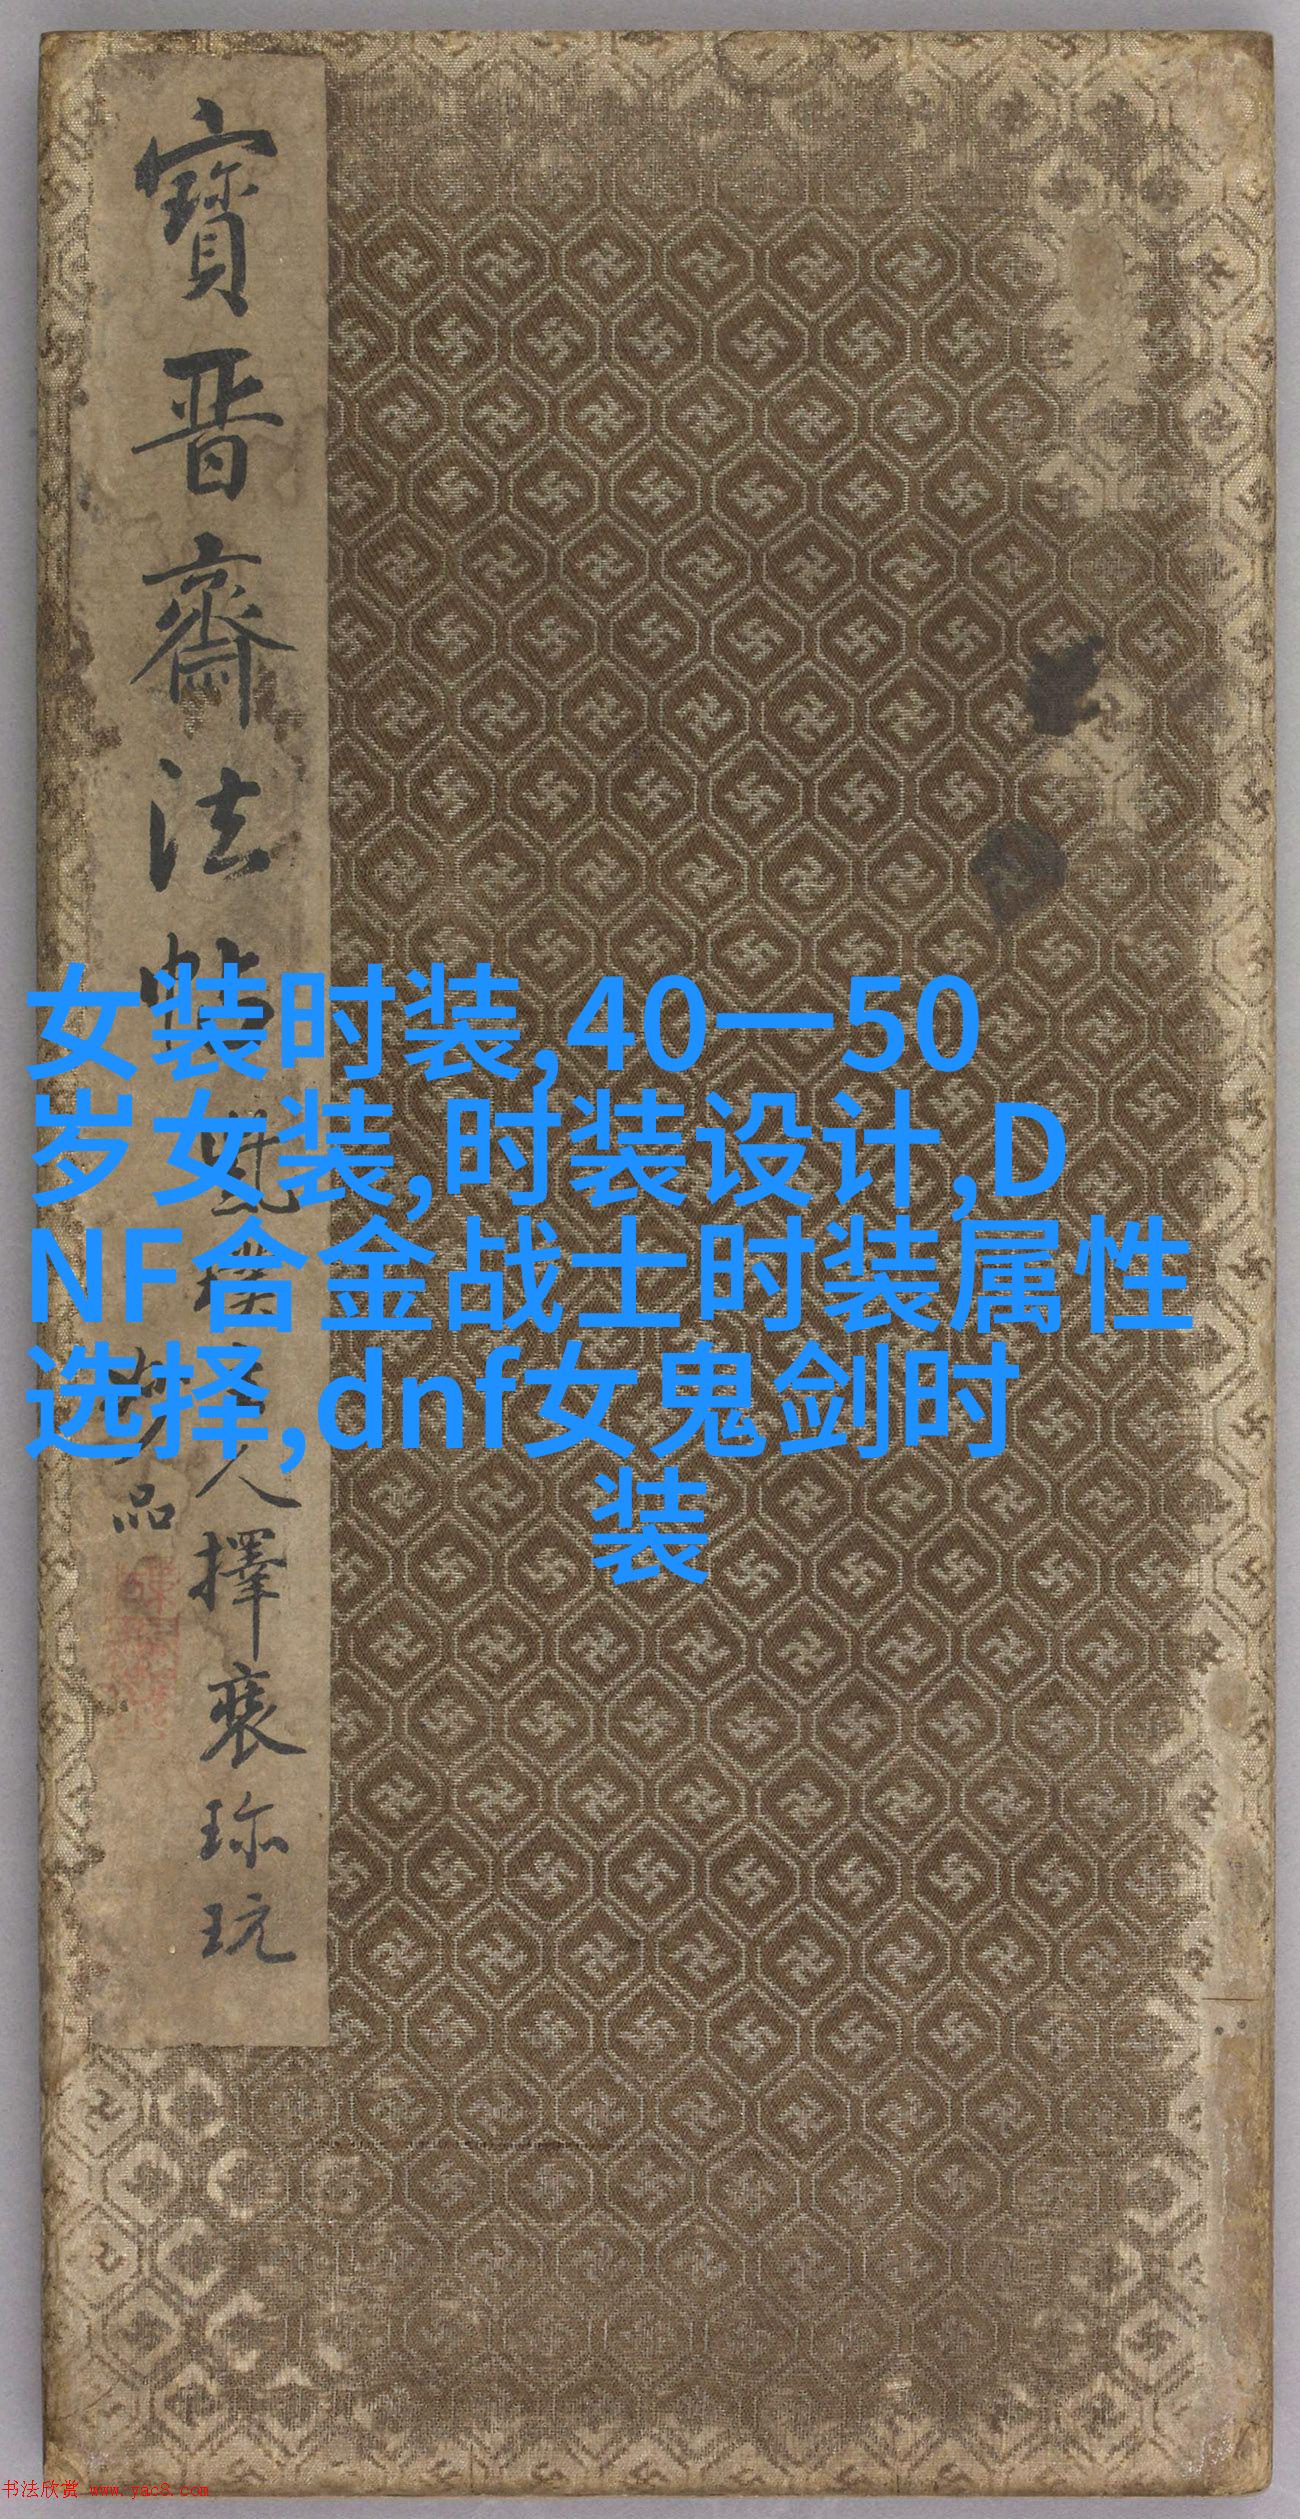 寶晉齋法帖
人擇裘珎玩
品
女装时装,40一50
岁女装,时装设计,D
NF合金战士时装属性
选择,dnf女鬼剑时
装
书法欣赏 www.yac8.com